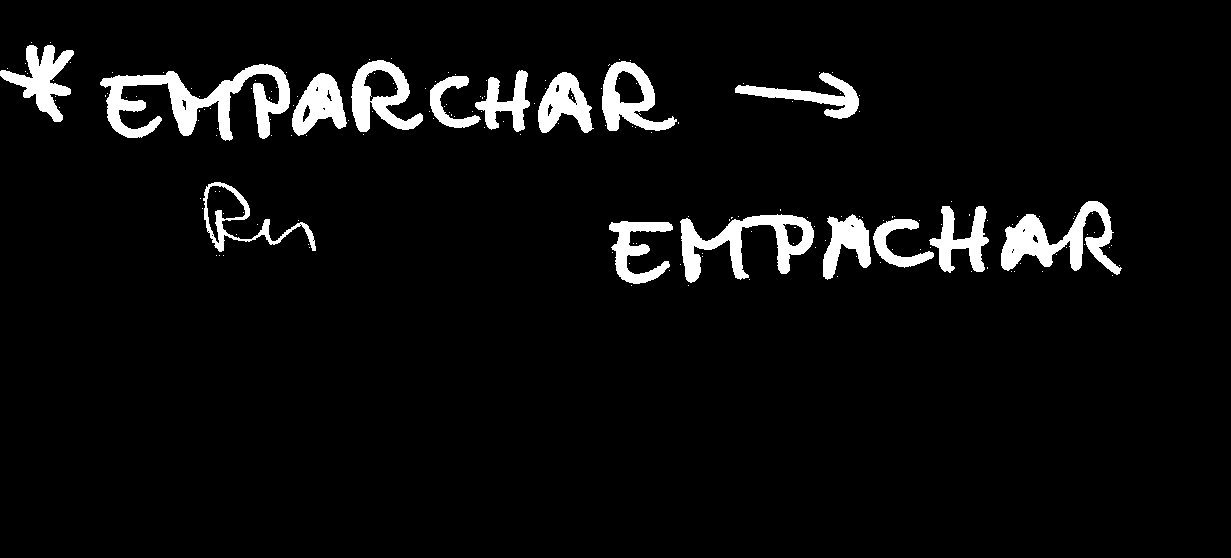 * EMPARCHAR →
EMPACHAR